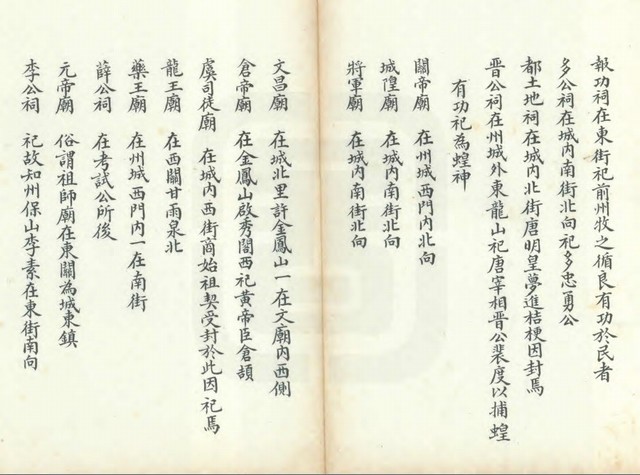 報功祠在東街祀前州牧之循良有功於民者
多公祠在城内南街北向祀多忠勇公
都土地祠在城内北街唐明皇夢進桔梗因封焉
晋公祠在州城外東龍山祀唐宰相晋公裴度以捕蝗
有功祀為蝗神
關帝廟 在州城西門内北向
城隍廟 在城内南街北向
將軍廟 在城内南街北向
文昌廟 在城北里許金鳳山一在文廟内西側
倉帝廟 在金鳳山啟秀閣西祀黄帝臣倉頡
虞司徒廟 在城内西街商始祖契受封於此因祀焉
龍王廟 在西關甘雨泉北
藥王廟 在州城西門内一在南街
薛公祠 在考試公所後
元帝廟 俗謂祖師廟在東關為城東鎮
李公祠 祀故知州保山李素在東街南向